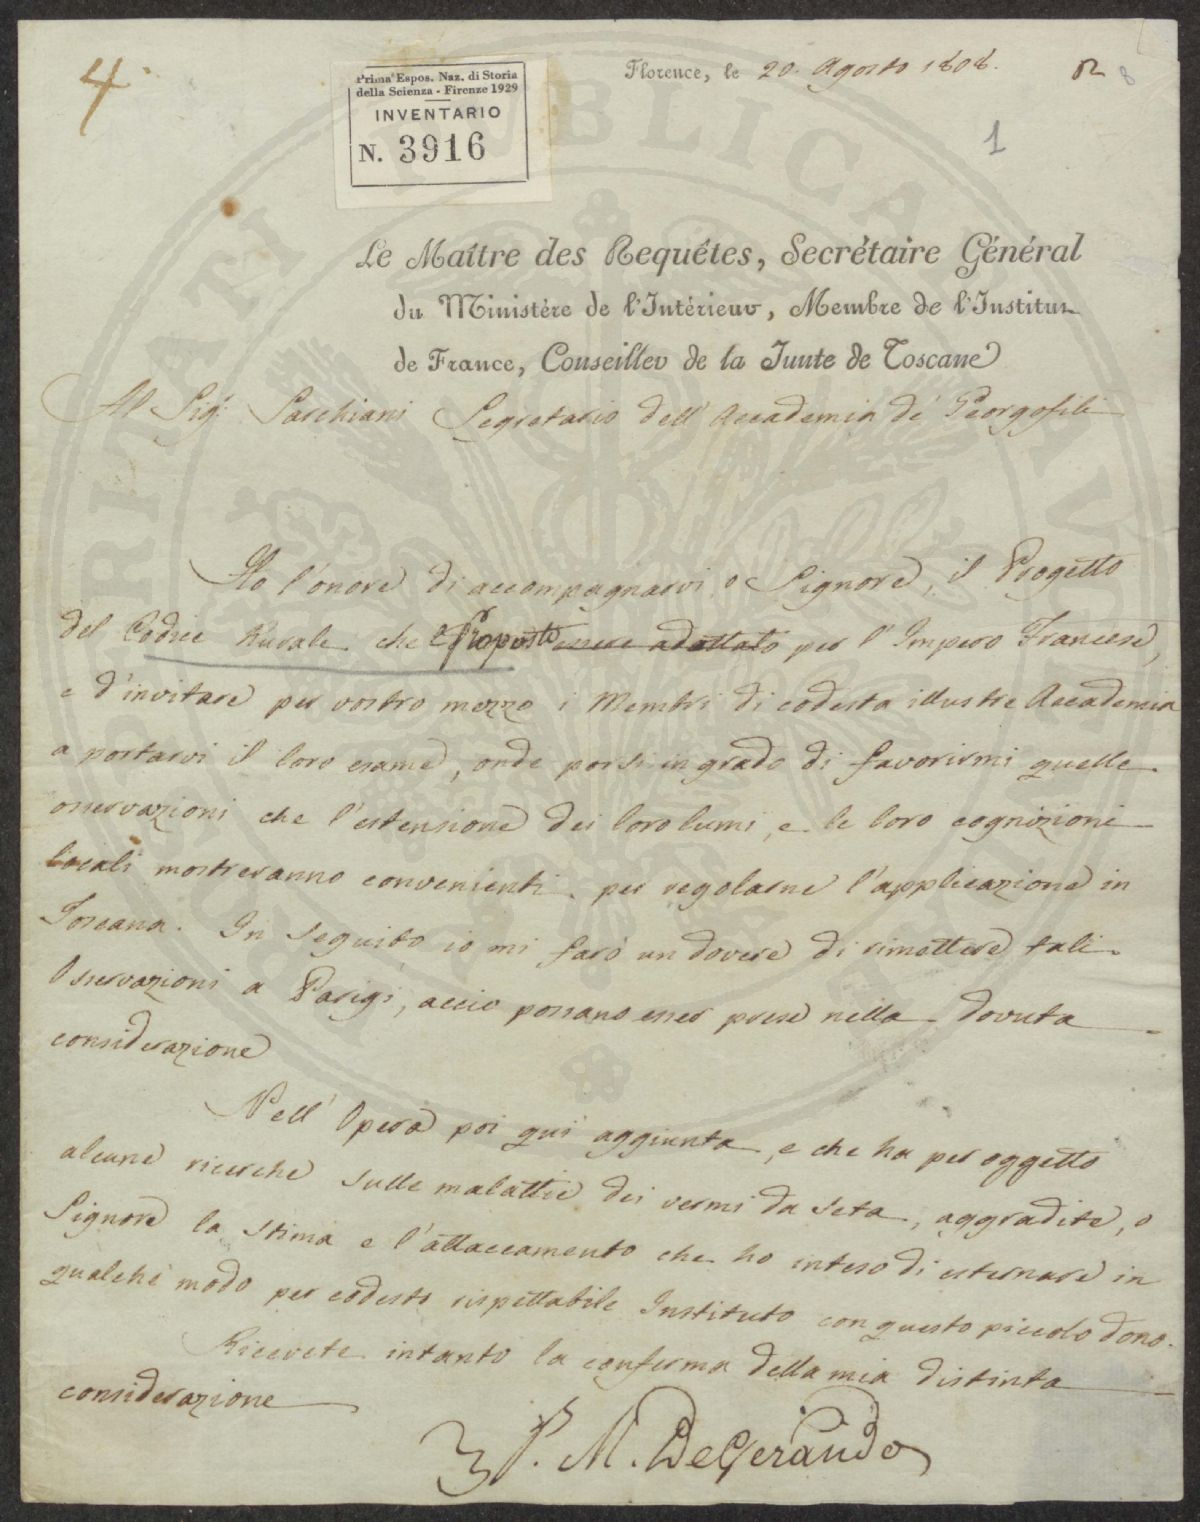 4.
Prima Espos. Naz. di Storia
della Scienza - Firenze 1929
INVENTARIO
N. 3916
Florence, le 20. Agosto 1808.
8
1
Le Maître des Requêtes, Secrétaire Général
du Ministère de l'Intérieur, Membre de l'Institut
de France, Conseiller de la Junte de Toscane
Al Sig.r Sarchiani Segretario dell' Accademia de' Georgofili
Ho l'onore di accompagnarvi o Signore, il Progetto
del Codice Rurale che è Proposto essere adottato per l'Impero Francese,
e d'invitare per vostro mezzo i Membri di codesta illustre Accademia
a portarvi il loro esame, onde porsi in grado di favorirmi quelle
osservazioni che l'estensione dei loro lumi, e le loro cognizioni
locali mostreranno convenienti per regolarne l'applicazione in
Toscana. In seguito io mi farò un dovere di rimettere tali
Osservazioni a Parigi, acciò possano esser prese nella dovuta
considerazione
Nell' Opera poi qui aggiunta, e che ha per oggetto
alcune ricerche sulle malattie dei vermi da seta, aggradite, o
Signore la stima e l'attaccamento che ho inteso di esternare in
qualche modo per codesto rispettabile Instituto con questo piccolo dono.
Ricevete intanto la conferma della mia distinta
considerazione
J. M. DeGerando